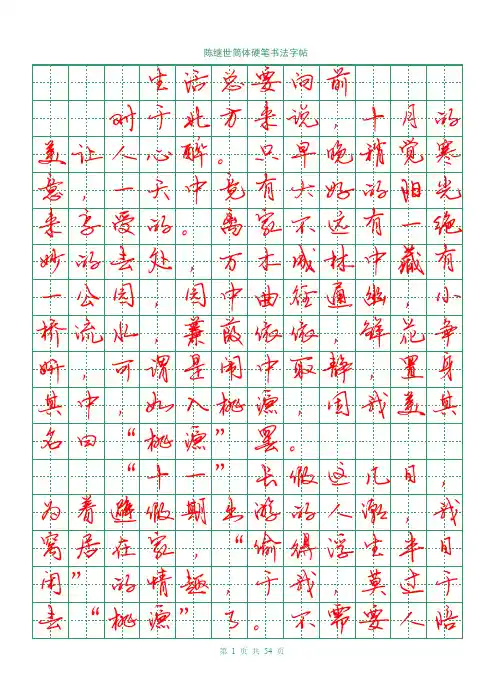 陈继世简体硬笔书法字帖
生活总要向前
对于北方来说，十月的
美让人心醉。只早晚稍觉寒
意，一天中竟有大好的阳光
来享受的。离家不远有一绝
妙的去处，万木成林中藏有
一公园，园中曲径通幽，小
桥流水，蒹葭依依，鲜花争
妍，可谓是闹中取静，置身
其中，如入桃源，固我美其
名曰“桃源”罢。
“十一”长假这几日，
为着避假期出游的人潮，我
窝居在家，“偷得浮生半日
闲”的情趣，于我，莫过于
去“桃源”了。不需要人陪
第 1 页 共 54 页